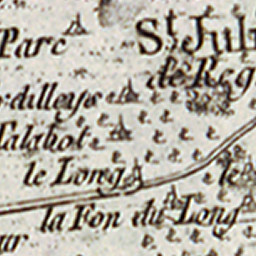 Parc
St. Juli
de Reg
dilleys
Talabot
le Long
le
la Fon du Long
ur